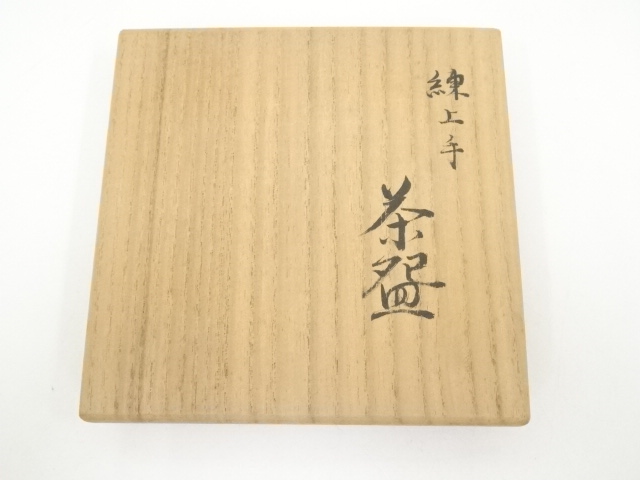 練上手
茶盌